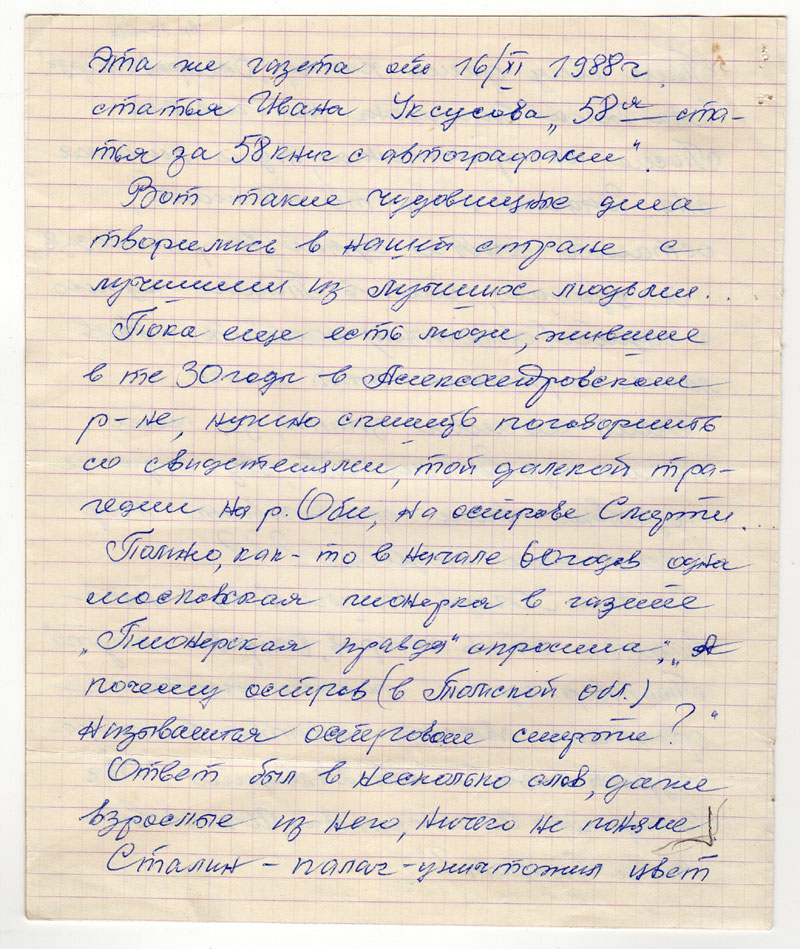 Эта же газета от 16/XI 1988 г.
статья Ивана Уксусова „58я ста-
тья за 58 книг с автографами“.
Вот такие чудовищные дела
творились в нашей стране с
лучшими из лучших людьми...
Пока еще есть люди, жившие
в те 30 годы в Александровском
р-не, нужно спешить поговорить
со свидетелями, той далекой тра-
гедии на р. Оби, на острове Смерти...
Помню, как-то в начале 60 годов одна
московская пионерка в газете
„Пионерская правда“ спросила: „А
почему остров (в Томской обл.)
называется островом смерти?“
Ответ был в несколько слов, даже
взрослые из него, ничего не поняли
Сталин – палач – уничтожил цвет